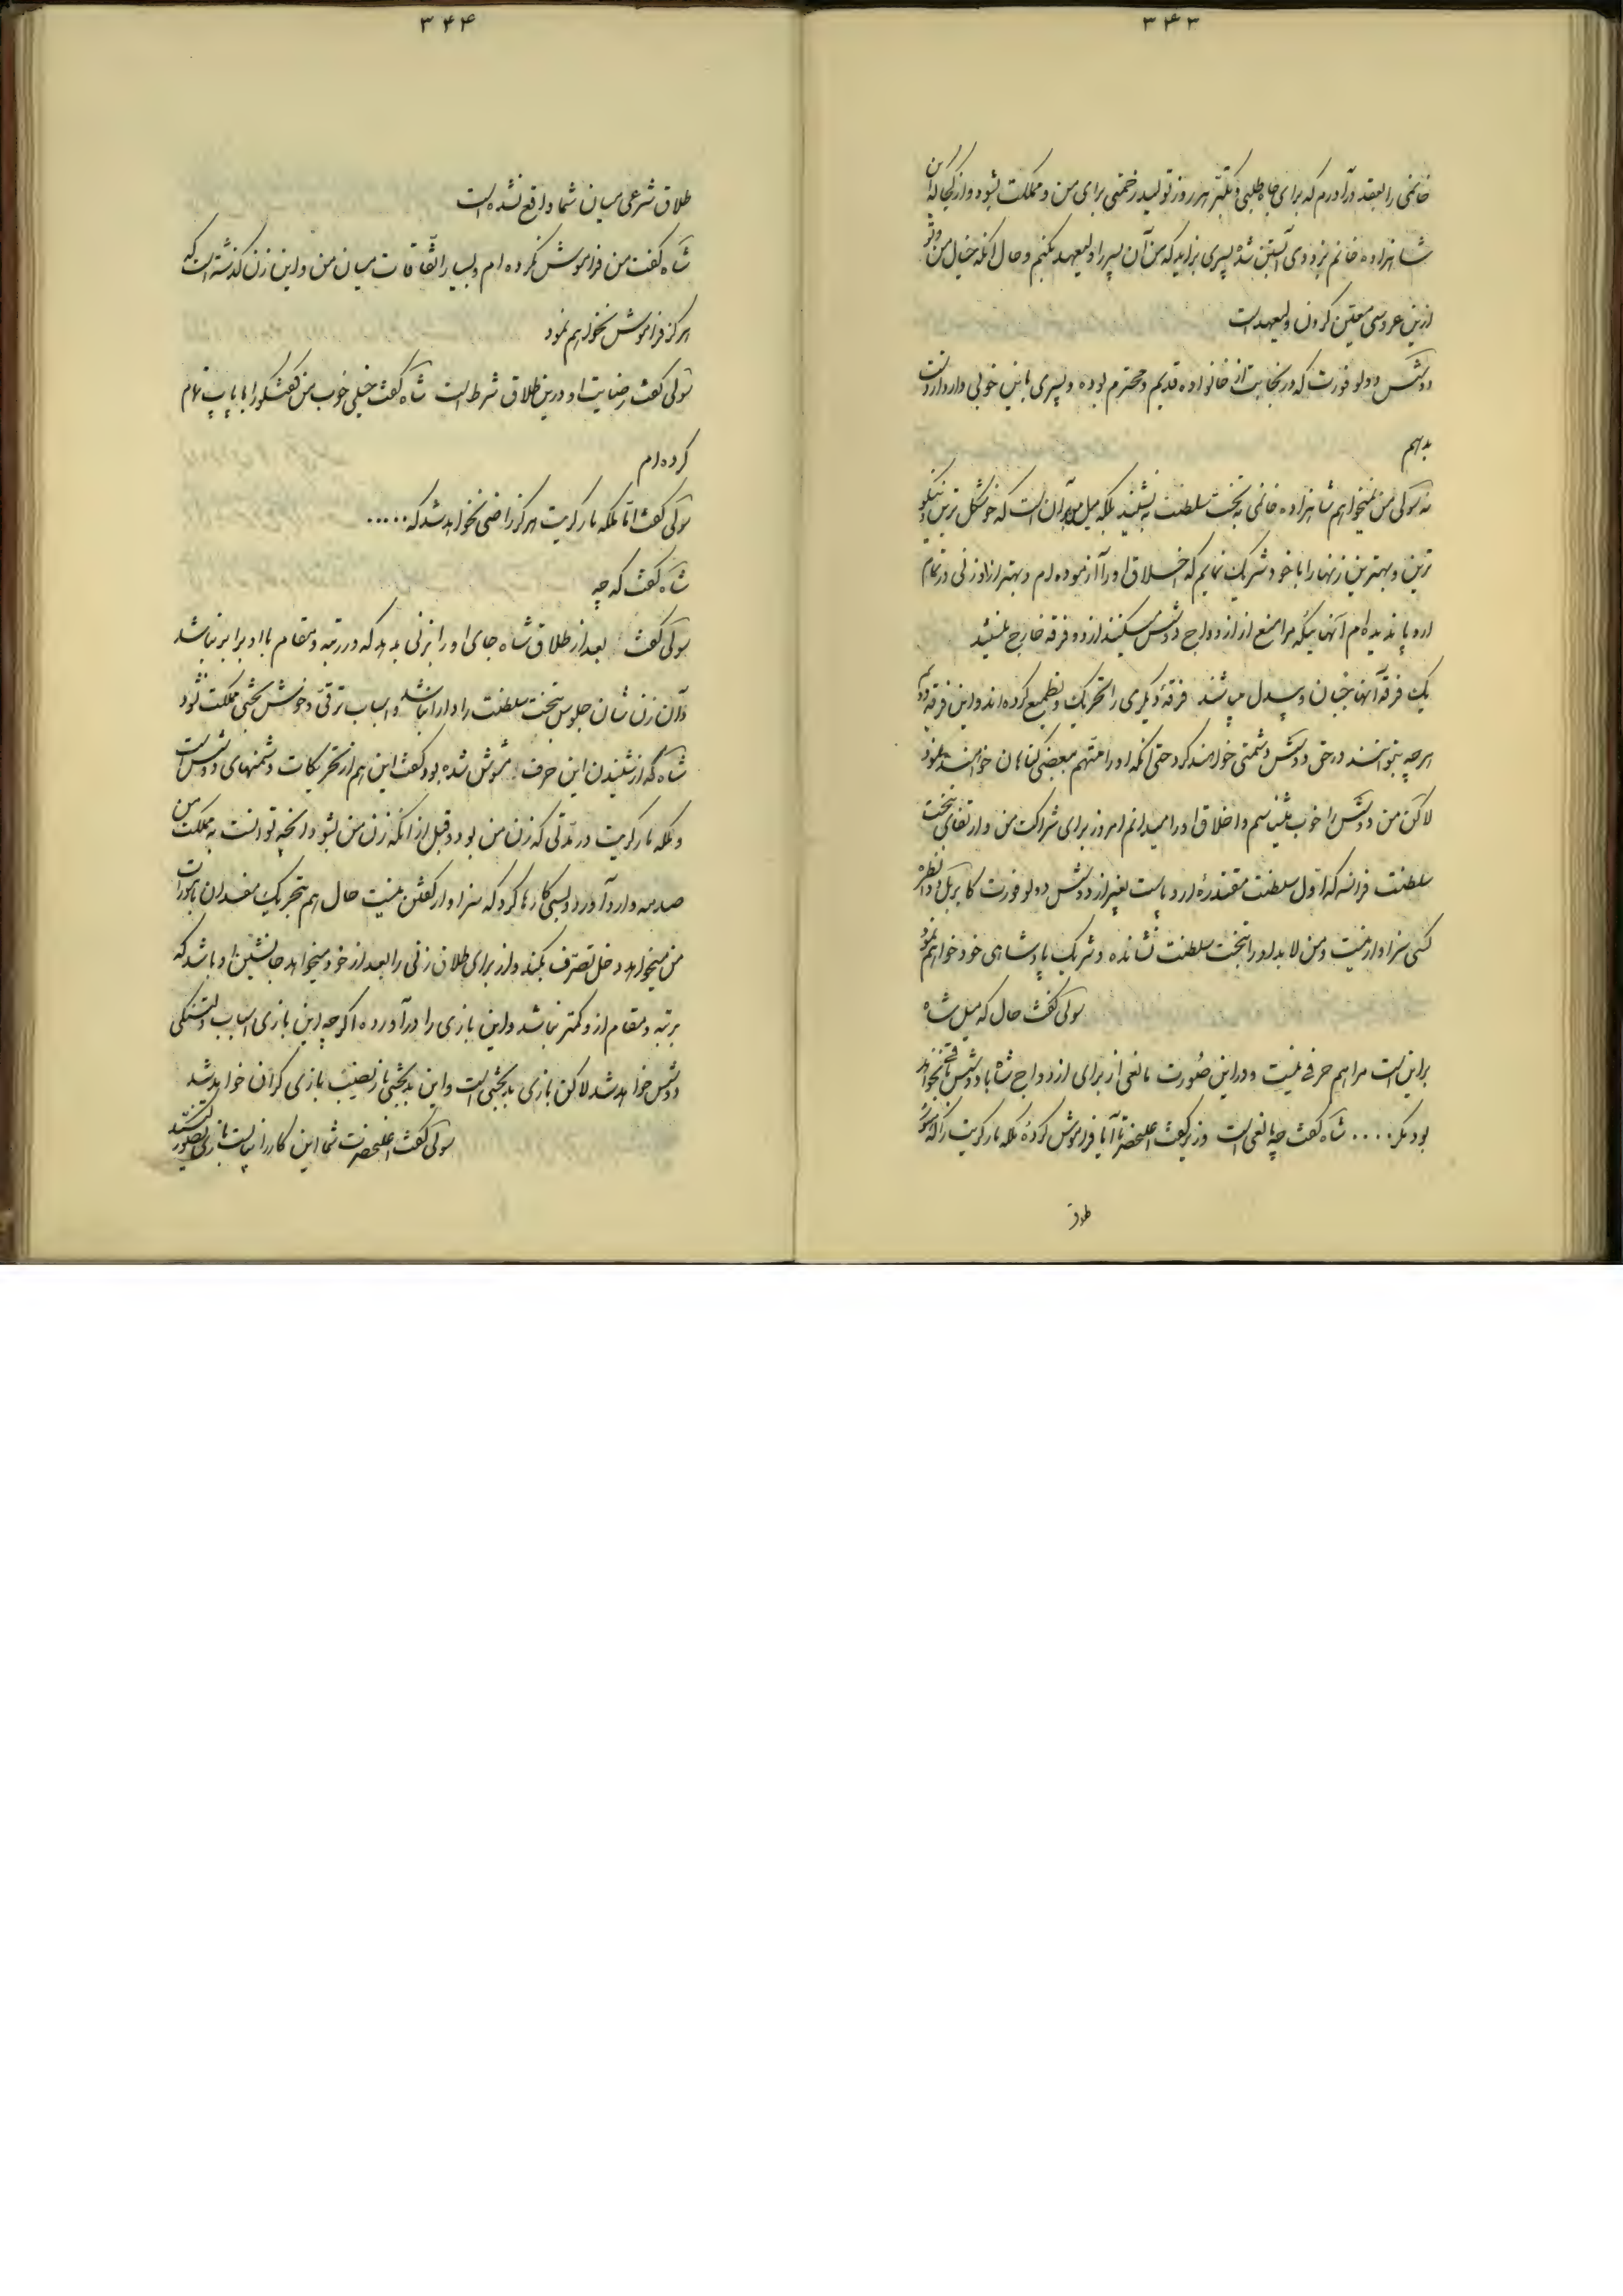 ۳۴۳
خانمی را بعقد درآورم که برای جاه طلبی و تکبّر هر روز تولید زحمتی برای من و مملکت بشود و از کجا که این
شاهزاده خانم بزودی آبستن شده پسری بزاید که من آن پسر را ولیعهد بکنم و حال آنکه خیال من
ازین عروسی معیّن کردن ولیعهد است
دوشس دولو فورت که در نجابت از خانواده قدیم و محترم بوده و پسری باین خوبی دارد
بدهم
نه سولی من نمیخواهم شاهزاده خانمی به تخت سلطنت بنشیند بلکه میل من بر آن است که خوشگل ترین و نیکو
ترین و بهترین زنها را با خود شریک نمایم که اخلاق او را آزموده ام و بهتر از او زنی در تمام
اروپا ندیده ام آنهائیکه مرا منع از ازدواج دوشس میکنند از دو فرقه خارج نیستند
یک فرقه آنها جبان و بیدل میباشند فرقه دیگری را تحریک و تطمیع کرده اند و این فرقه دویم
هر چه بتوانند در حق دوشس دشمنی خواهند کرد حتی آنکه او را متّهم ببعضی گناهان خواهند نمود
لاکن من دوشس را خوب میشناسم و اخلاق او را میدانم امروز برای شراکت من و ارتقای تخت
سلطنت فرانسه که اوّل سلطنت مقتدرهٔ اروپاست بغیر از دوشس دولو فورت کابریل
کسی سزاوار نیست و من لابد او را بتخت سلطنت نشانده و شریک پادشاهی خود خواهم نمود
سولی گفت حال که میل شاه
بر این است مرا هم حرفی نیست و در این صورت مانعی از برای ازدواج شاه با دوشس باقی نخواهد
بود مگر.... شاه گفت چه مانعی است وزیر گفت اعلیحضرتا آیا فراموش کرده ملکه مارگریت را که هنوز
طلاق
۳۴۴
طلاق شرعی میان شما واقع نشده است
شاه گفت من فراموش نکرده ام و بسیار اتّفاقات میان من و این زن گذشته است که
هرگز فراموش نخواهم نمود
سولی گفت رضایت او در این طلاق شرط است شاه گفت خیلی خوب من گفتگو را با پاپ تمام
کرده ام
سولی گفت امّا ملکه مارگریت هرگز راضی نخواهد شد که.....
شاه گفت که چه
سولی گفت بعد از طلاق شاه جای او را بزنی بدهد که در رتبه و مقام با او برابر نباشد
و آن زن شأن جلوس بتخت سلطنت را دارا نباشد و اسباب ترقّی و خوش بختی مملکت نشود
شاه که از شنیدن این حرف مشوّش شده بود گفت این هم از تحریکات دشمنهای دوشس است
و ملکه مارگریت در مدّتی که زن من بود و قبل از آنکه زن من بشود آنچه توانست به مملکت من
صدمه وارد آورد و بسی کارها کرد که سزاوار گفتن نیست حال هم بتحریک مفسدان بامورات
من میخواهد دخل تصرّف بکند و از برای طلاق زنی را بعد از خود میخواهد جانشین او باشد که
برتبه و مقام از او کمتر نباشد و این بازی را درآورده اگرچه این بازی اسباب دلتنگی
دوشس خواهد شد لاکن بازی بدبختی است و این بدبختی باز نصیب بازی گران خواهد شد
سولی گفت اعلیحضرت شما این کار را نبایست بازی تصوّر کنید